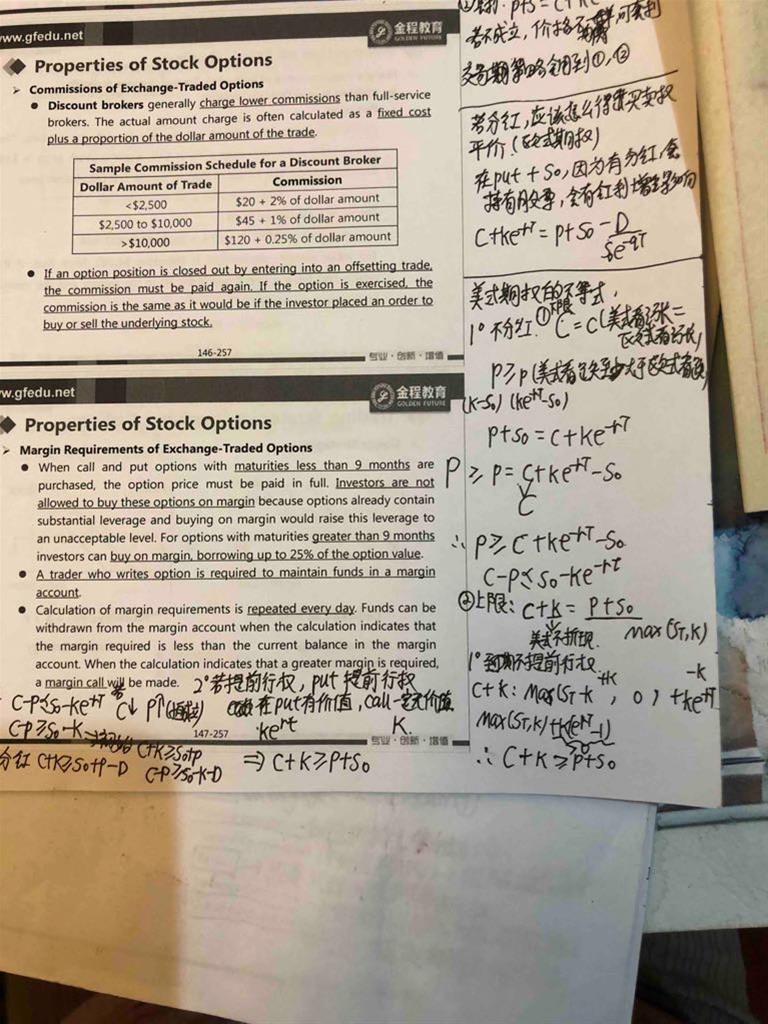 ww.gfedu.net
金程教育
GOLDEN FUTURE
Properties of Stock Options
Commissions of Exchange-Traded Options
Discount brokers generally charge lower commissions than full-service
brokers. The actual amount charge is often calculated as a fixed cost
plus a proportion of the dollar amount of the trade.
Sample Commission Schedule for a Discount Broker
Dollar Amount of Trade Commission
<$2,500 $20 + 2% of dollar amount
$2,500 to $10,000 $45 + 1% of dollar amount
>$10,000 $120 + 0.25% of dollar amount
If an option position is closed out by entering into an offsetting trade,
the commission must be paid again. If the option is exercised, the
commission is the same as it would be if the investor placed an order to
buy or sell the underlying stock.
146-257
专业·创新·增值
w.gfedu.net
金程教育
GOLDEN FUTURE
Properties of Stock Options
Margin Requirements of Exchange-Traded Options
When call and put options with maturities less than 9 months are
purchased, the option price must be paid in full. Investors are not
allowed to buy these options on margin because options already contain
substantial leverage and buying on margin would raise this leverage to
an unacceptable level. For options with maturities greater than 9 months
investors can buy on margin, borrowing up to 25% of the option value.
A trader who writes option is required to maintain funds in a margin
account.
Calculation of margin requirements is repeated every day. Funds can be
withdrawn from the margin account when the calculation indicates that
the margin required is less than the current balance in the margin
account. When the calculation indicates that a greater margin is required,
a margin call will be made.
147-257
专业·创新·增值
2° 若提前行权, put 提前行权
在put有价值, call一定无价值
ke^rt K.
C-P≤S0-ke^-rT
C↓ P↑
C-P≥S0-K
C+K≥S0+P
分红 C+K≥S0+P-D C-P≥S0-K-D
⇒ C+K≥P+S0
若不成立,价格不
若分红,应该怎么得买卖权
平价?(欧式期权)
在put+S0,因为有分红,会
持有股票,会有红利
C+Ke^-rT = P+S0-D
S0e^-qT
美式期权的不等式.
1° 不分红. ①下限 C=c(美式看涨=
欧式看涨)
P≥p(美式看
(K-S0) (ke^-rT-S0)
P+S0=C+ke^-rT
P≥p=C+ke^-rT-S0
C
∴ P≥C+ke^-rT-S0
C-P≤S0-ke^-rt
②上限: C+k = P+S0
美式不折现. max(ST,K)
1° 到期不提前行权
C+k: max(ST-k, 0)+ke^rT
max(ST,K)+K(e^rT-1)
∴ C+K≥P+S0